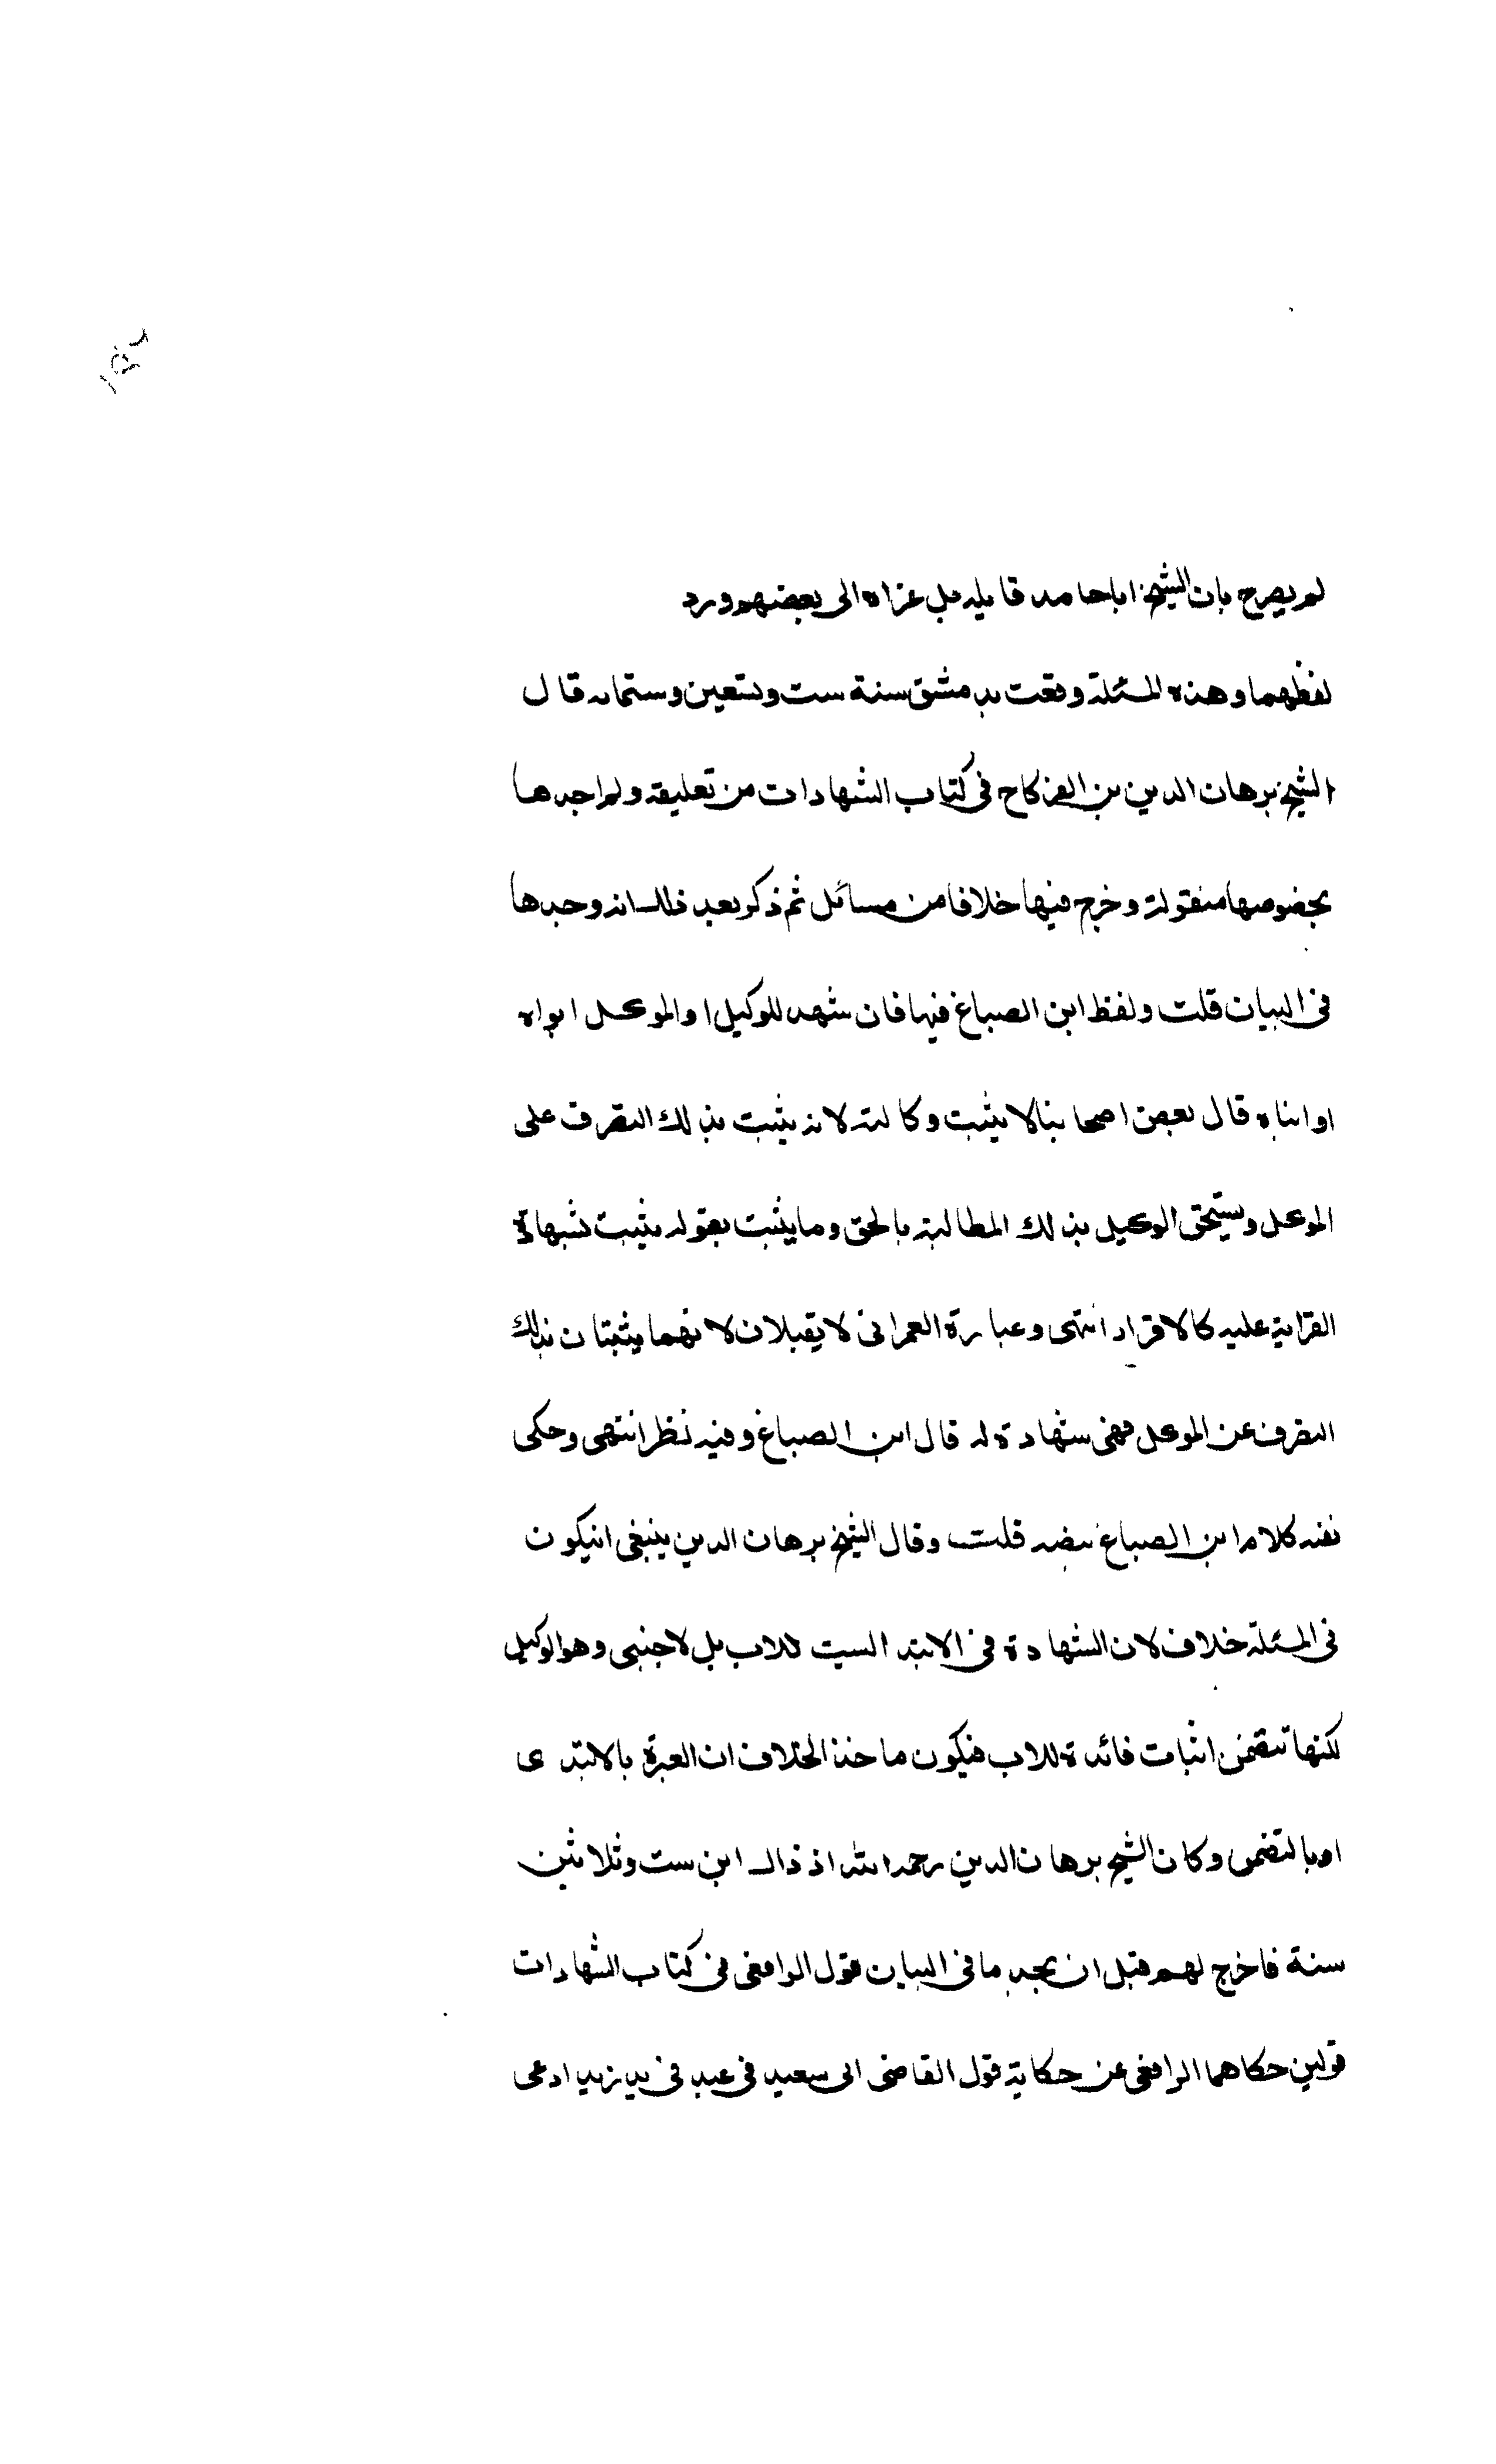 لم يصرح بان الشيخ اباحامد قايله بل عزاه الى بعضهم ورد
لفظهما وهذه المسئلة وقعت بدمشق سنة ست وتسعين وستمايه قال
الشيخ برهان الدين بن الفركاح فى كتاب الشهادات من تعليقه ولم اجدها
بخصوصها منقولة وخرج فيها خلافا من مسائل ثم ذكر بعد ذلك انه وجدها
فى البيان قلت ولفظ ابن الصباغ فيها فان شهد للوكيل او الموكل ابواه
او ابناه قال بعض اصحابنا لا يثبت وكالته لانه يثبت بذلك التصرف على
الموكل ويستحق الوكيل بذلك المطالبة بالحق وما يثبت بقوله يثبت بشهادة
القرابة عليه كالاقرار انتهى وعبارة العمرانى لا يقبلان لانهما يثبتان بذلك
التصرف عن الموكل فهى شهادة له قال ابن الصباغ وفيه نظر انتهى وحكى
نفسه كلام ابن الصباغ بنصه قلت وقال الشيخ برهان الدين ينبغى ان يكون
فى المسئلة خلاف لان الشهادة فى الابتد اليست للاب بل لاجنبى وهو الوكيل
لكنها تتضمن اثبات فائدة للاب فيكون ماخذ الخلاف ان العبرة بالابتدى
او بالتضمن وكان الشيخ برهان الدين رحمه الله اذ ذاك ابن ست وثلاثين
سنة فاخرج لهم قبل ان يجد ما فى البيان قول الرافعى فى كتاب الشهادات
قولين حكاهما الرافعى عن حكاية قول القاضى ابى سعيد فى عبد فى يد زيد ادعى